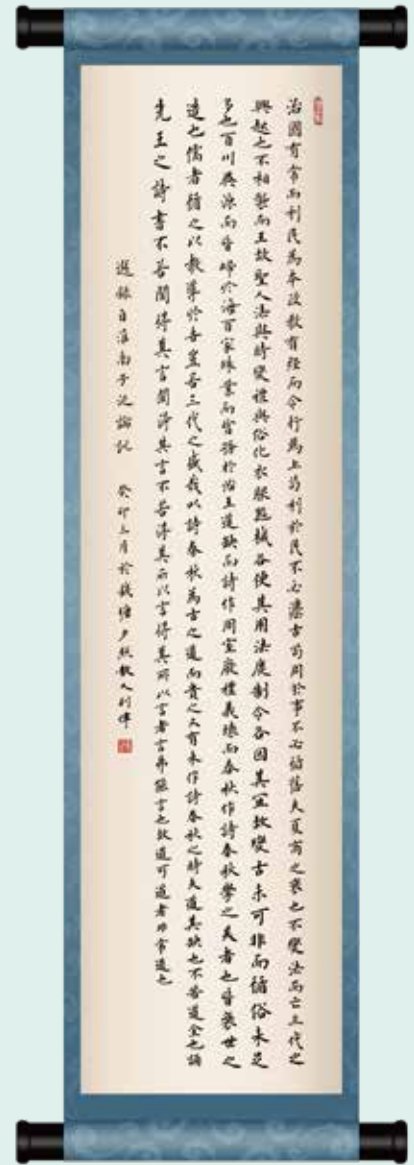 治國有常而利民為本政教有經而令行為上苟利於民不必灋古苟周於事不必循舊夫夏商之衰也不變法而亡三代之
興起也不相襲而王故聖人法與時變禮與俗化衣服器械各便其用法度制令各因其宜故變古未可非而循俗未足
多也百川異源而皆歸於海百家殊業而皆務於治王道缺而詩作周室廢禮義壞而春秋作詩春秋學之美者也皆衰世之
造也儒者循之以教導於豈若三代之盛哉以詩春秋為古之道而貴之又有未作詩春秋之時夫道其缺也不若道全也誦
先王之詩書不若聞得其言聞得其言不若得其所以言得其所以言者言弗能言也故道可道者非常道也
選錄自淮南子氾論訓 癸卯三月於錢塘夕照散人刘偉